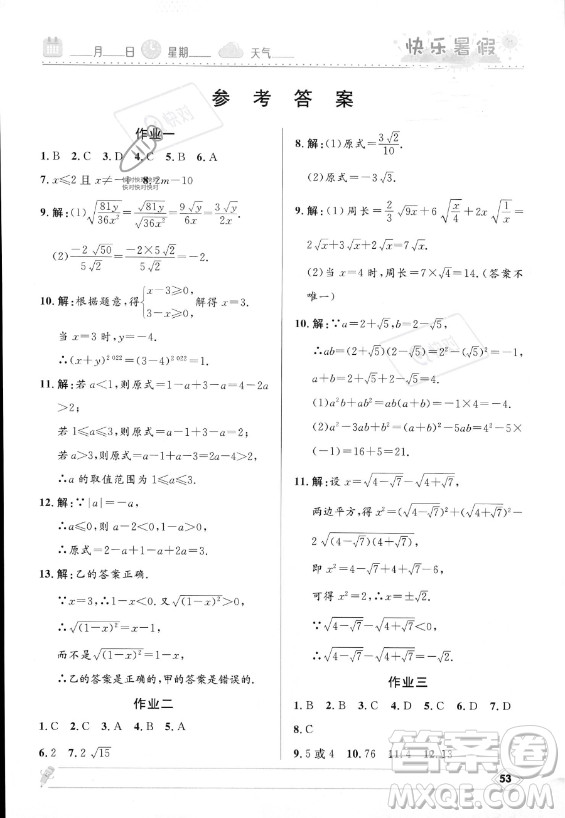 月 日 星期 天气
快乐暑假
参考答案
作业一
1. B 2. C 3. D 4. C 5. B 6. A
7. x≤2 且 x≠-1 8. 2m-10
9. 解:(1)√(81y/36x²)=√(81y)/√(36x²)=9√y/6x=3√y/2x.
(2)-2√50/5√2=-2×5√2/5√2=-2.
10. 解:根据题意,得{x-3≥0, 3-x≥0, 解得x=3.
当 x=3 时,y=-4.
∴(x+y)²⁰²²=(3-4)²⁰²²=1.
11. 解:若 a<1,则原式=1-a+3-a=4-2a
>2;
若 1≤a≤3,则原式=a-1+3-a=2;
若 a>3,则原式=a-1+a-3=2a-4>2.
∴a 的取值范围为 1≤a≤3.
12. 解:∵|a|=-a,
∴a≤0,a-2<0,1-a>0.
∴原式=2-a+1-a+2a=3.
13. 解:乙的答案正确.
∵x=3,∴1-x<0.又∵√(1-x)²>0,
∴√(1-x)²=x-1,
而不是√(1-x)²=1-x.
∴乙的答案正确,甲的答案是错误的.
作业二
1. C 2. C 3. A 4. A 5. C
6. 2 7. 2√15
8. 解:(1)原式=3√2/10.
(2)原式=-3√3.
9. 解:(1)周长=2/3√9x+6√(x/4)+2x√(1/x)=
2√x+3√x+2√x=7√x.
(2)当 x=4 时,周长=7×√4=14.(答案不
唯一)
10. 解:∵a=2+√5,b=2-√5,
∴ab=(2+√5)(2-√5)=4-5=-1,
a+b=2+√5+2-√5=4.
(1)a²b+ab²=ab(a+b)=-1×4=-4.
(2)a²-3ab+b²=(a+b)²-5ab=4²-
5×(-1)=16+5=21.
11. 解:设 x=√(4-√7)-√(4+√7),
两边平方,得 x²=(√(4-√7))²+(√(4+√7))²-
2√((4-√7)(4+√7)),
即 x²=4-√7+4+√7-6,
可得 x²=2,∴x=±√2.
∵√(4-√7)-√(4+√7)<0,
∴√(4-√7)-√(4+√7)=-√2.
作业三
1. B 2. B 3. D 4. B 5. D 6. D 7. D
8. C
9. 5 或 4 10. 76 11. 4 12. 13
53